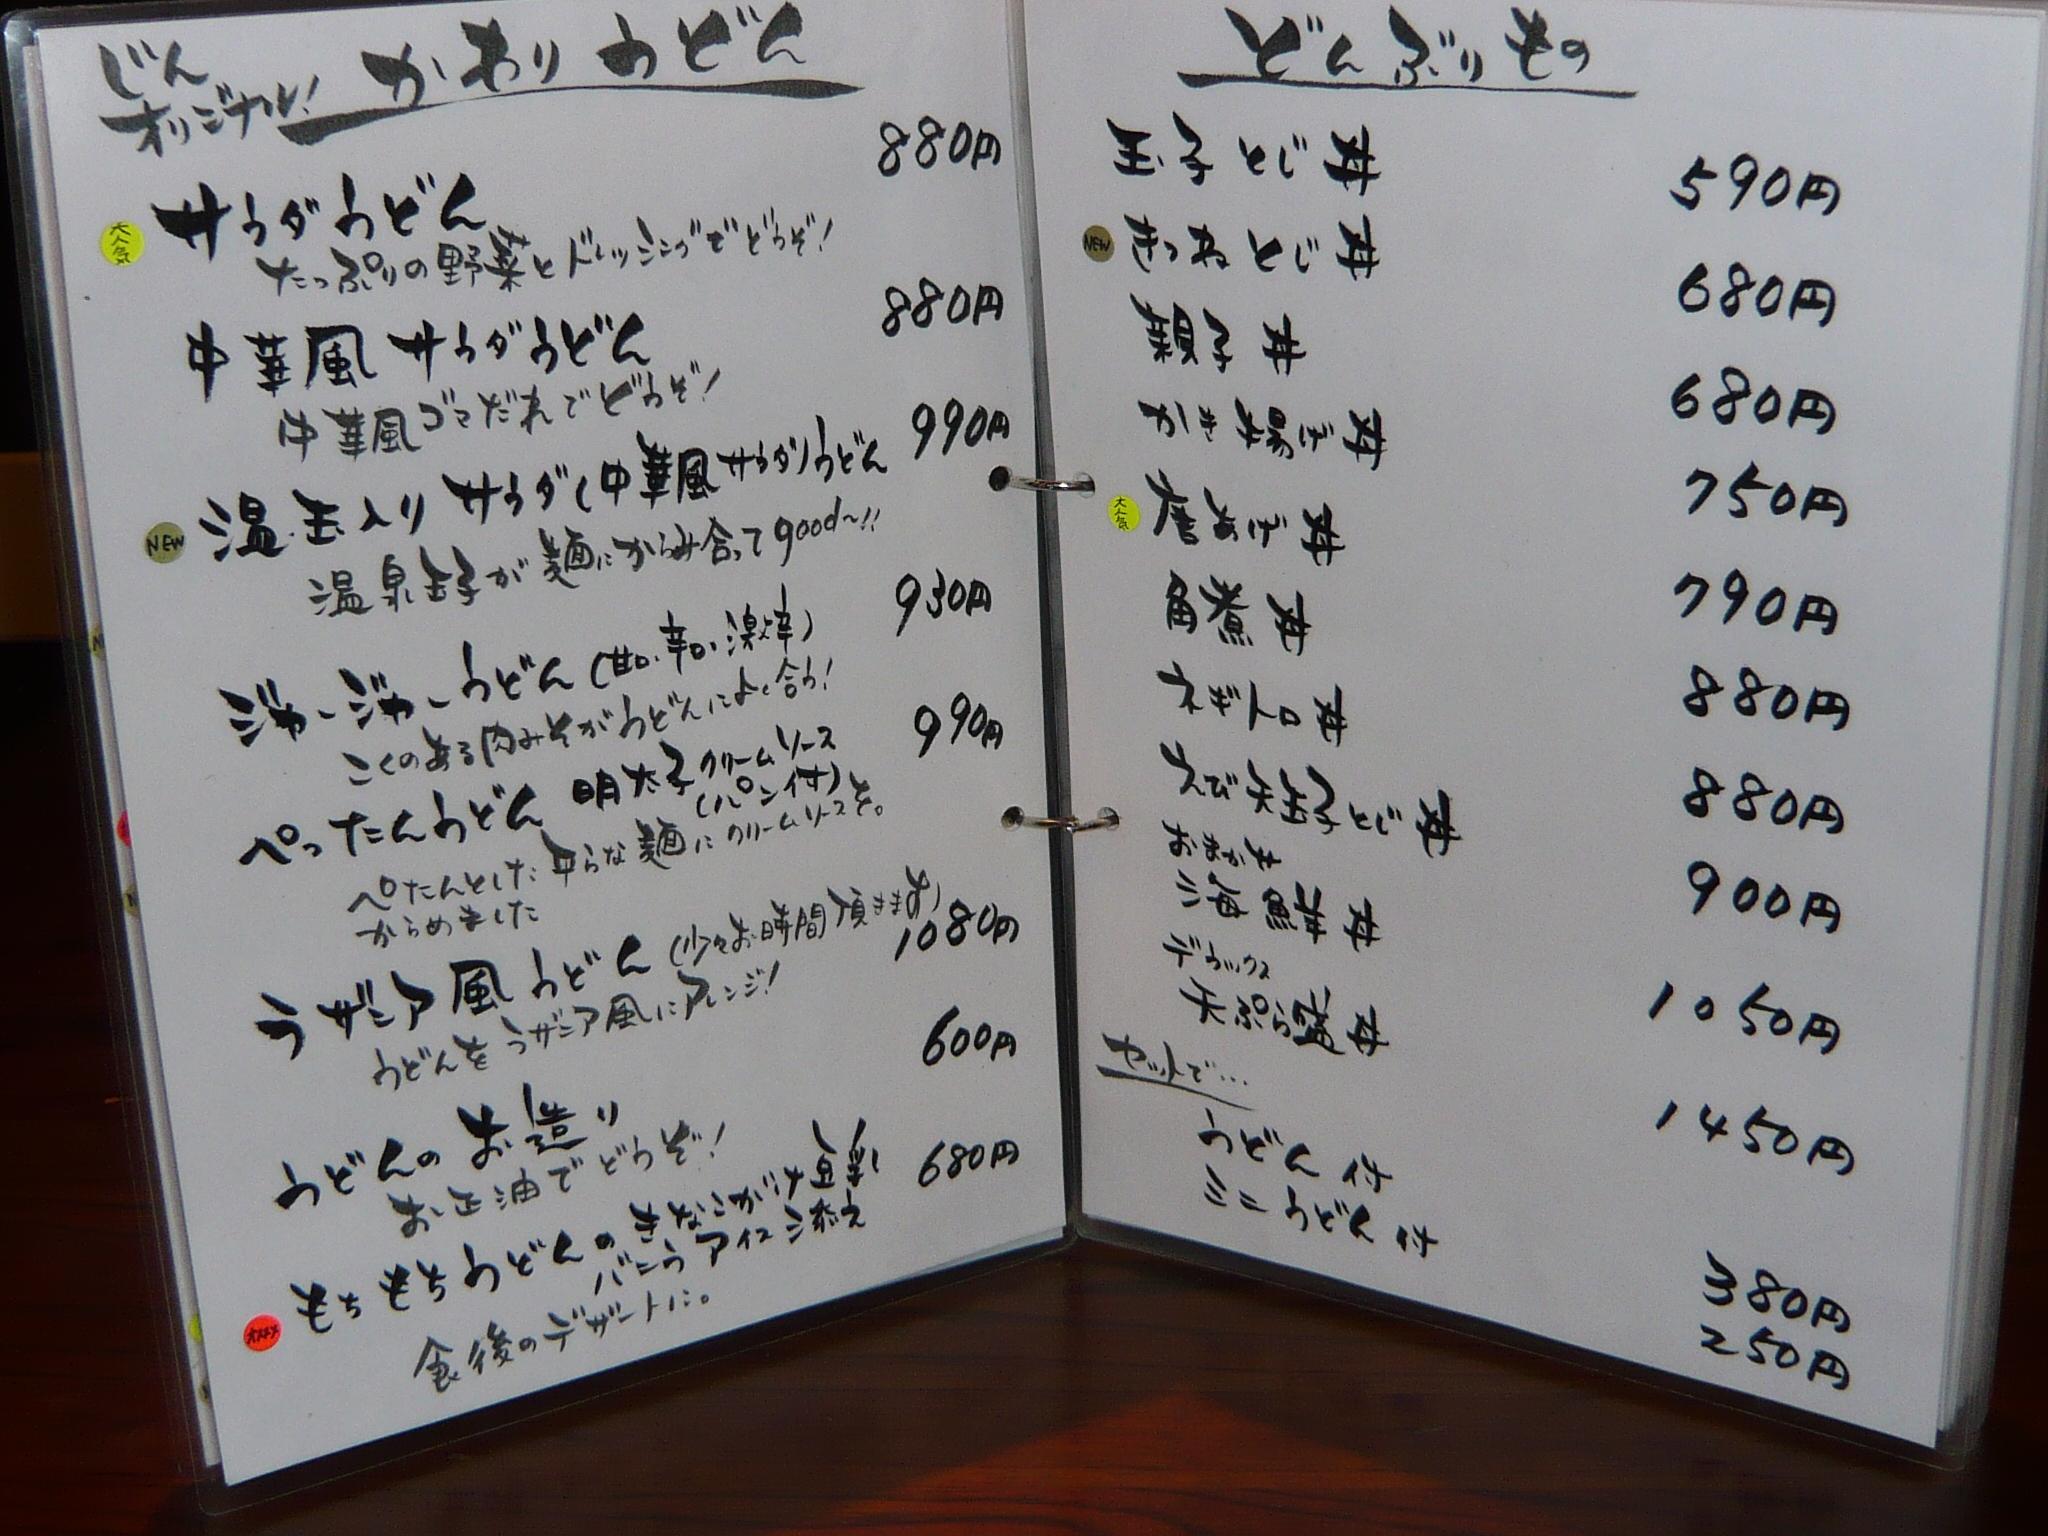 じん
オリジナル!
かわりうどん
大人気
サラダうどん 880円
たっぷりの野菜とドレッシングでどうぞ!
中華風サラダうどん 880円
中華風ゴマだれでどうぞ!
NEW
温玉入りサラダ(中華風サラダ)うどん 990円
温泉玉子が麺にからみ合ってgood〜!!
ジャージャーうどん(甘口・辛口・激辛) 930円
こくのある肉みそがうどんによく合う!
ぺったんうどん 明太子クリームソース 990円
(パン付)
ペたんとした平らな麺にクリームソースを。
からめました
ラザニア風うどん(少々お時間頂きます) 1080円
うどんをラザニア風にアレンジ!
うどんのお造り 600円
お正油でどうぞ!
オススメ
もちもちうどんのきなこがけ豆乳 680円
バニラアイス添え
食後のデザートに。
どんぶりもの
玉子とじ丼 590円
NEW
きつねとじ丼 680円
親子丼 680円
かき揚げ丼 750円
大人気
唐あげ丼 790円
角煮丼 880円
ネギトロ丼 880円
えび天玉子とじ丼 900円
おまかせ
海鮮丼 1050円
デラックス
天ぷら盛丼 1450円
セットで…
うどん付 380円
ミニうどん付 250円